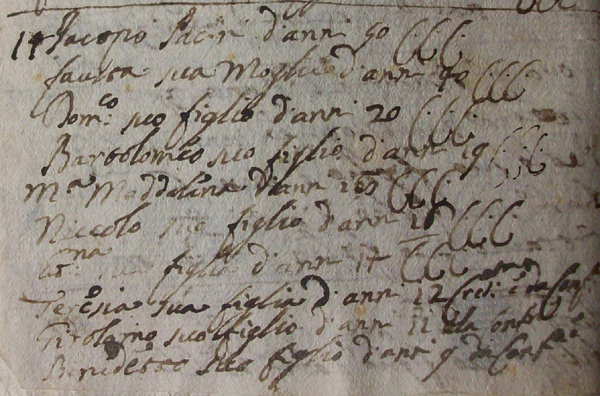 14 Jacopo Pacini d'anni 50 CCC
fausta sua Moglie d'anni 40 CCC
Dom:co suo figlio d'anni 20 CCC
Bartolomeo suo figlio d'anni 19 CCC
M:a Maddalena d'anni CCC
Niccolo suo figlio d'anni 16 CCC
sua figlia d'anni 14 CCC
Teresia sua figlia d'anni 12 Cres:
Girolamo suo figlio d'anni 11
Benedetto suo figlio d'ani 9 da